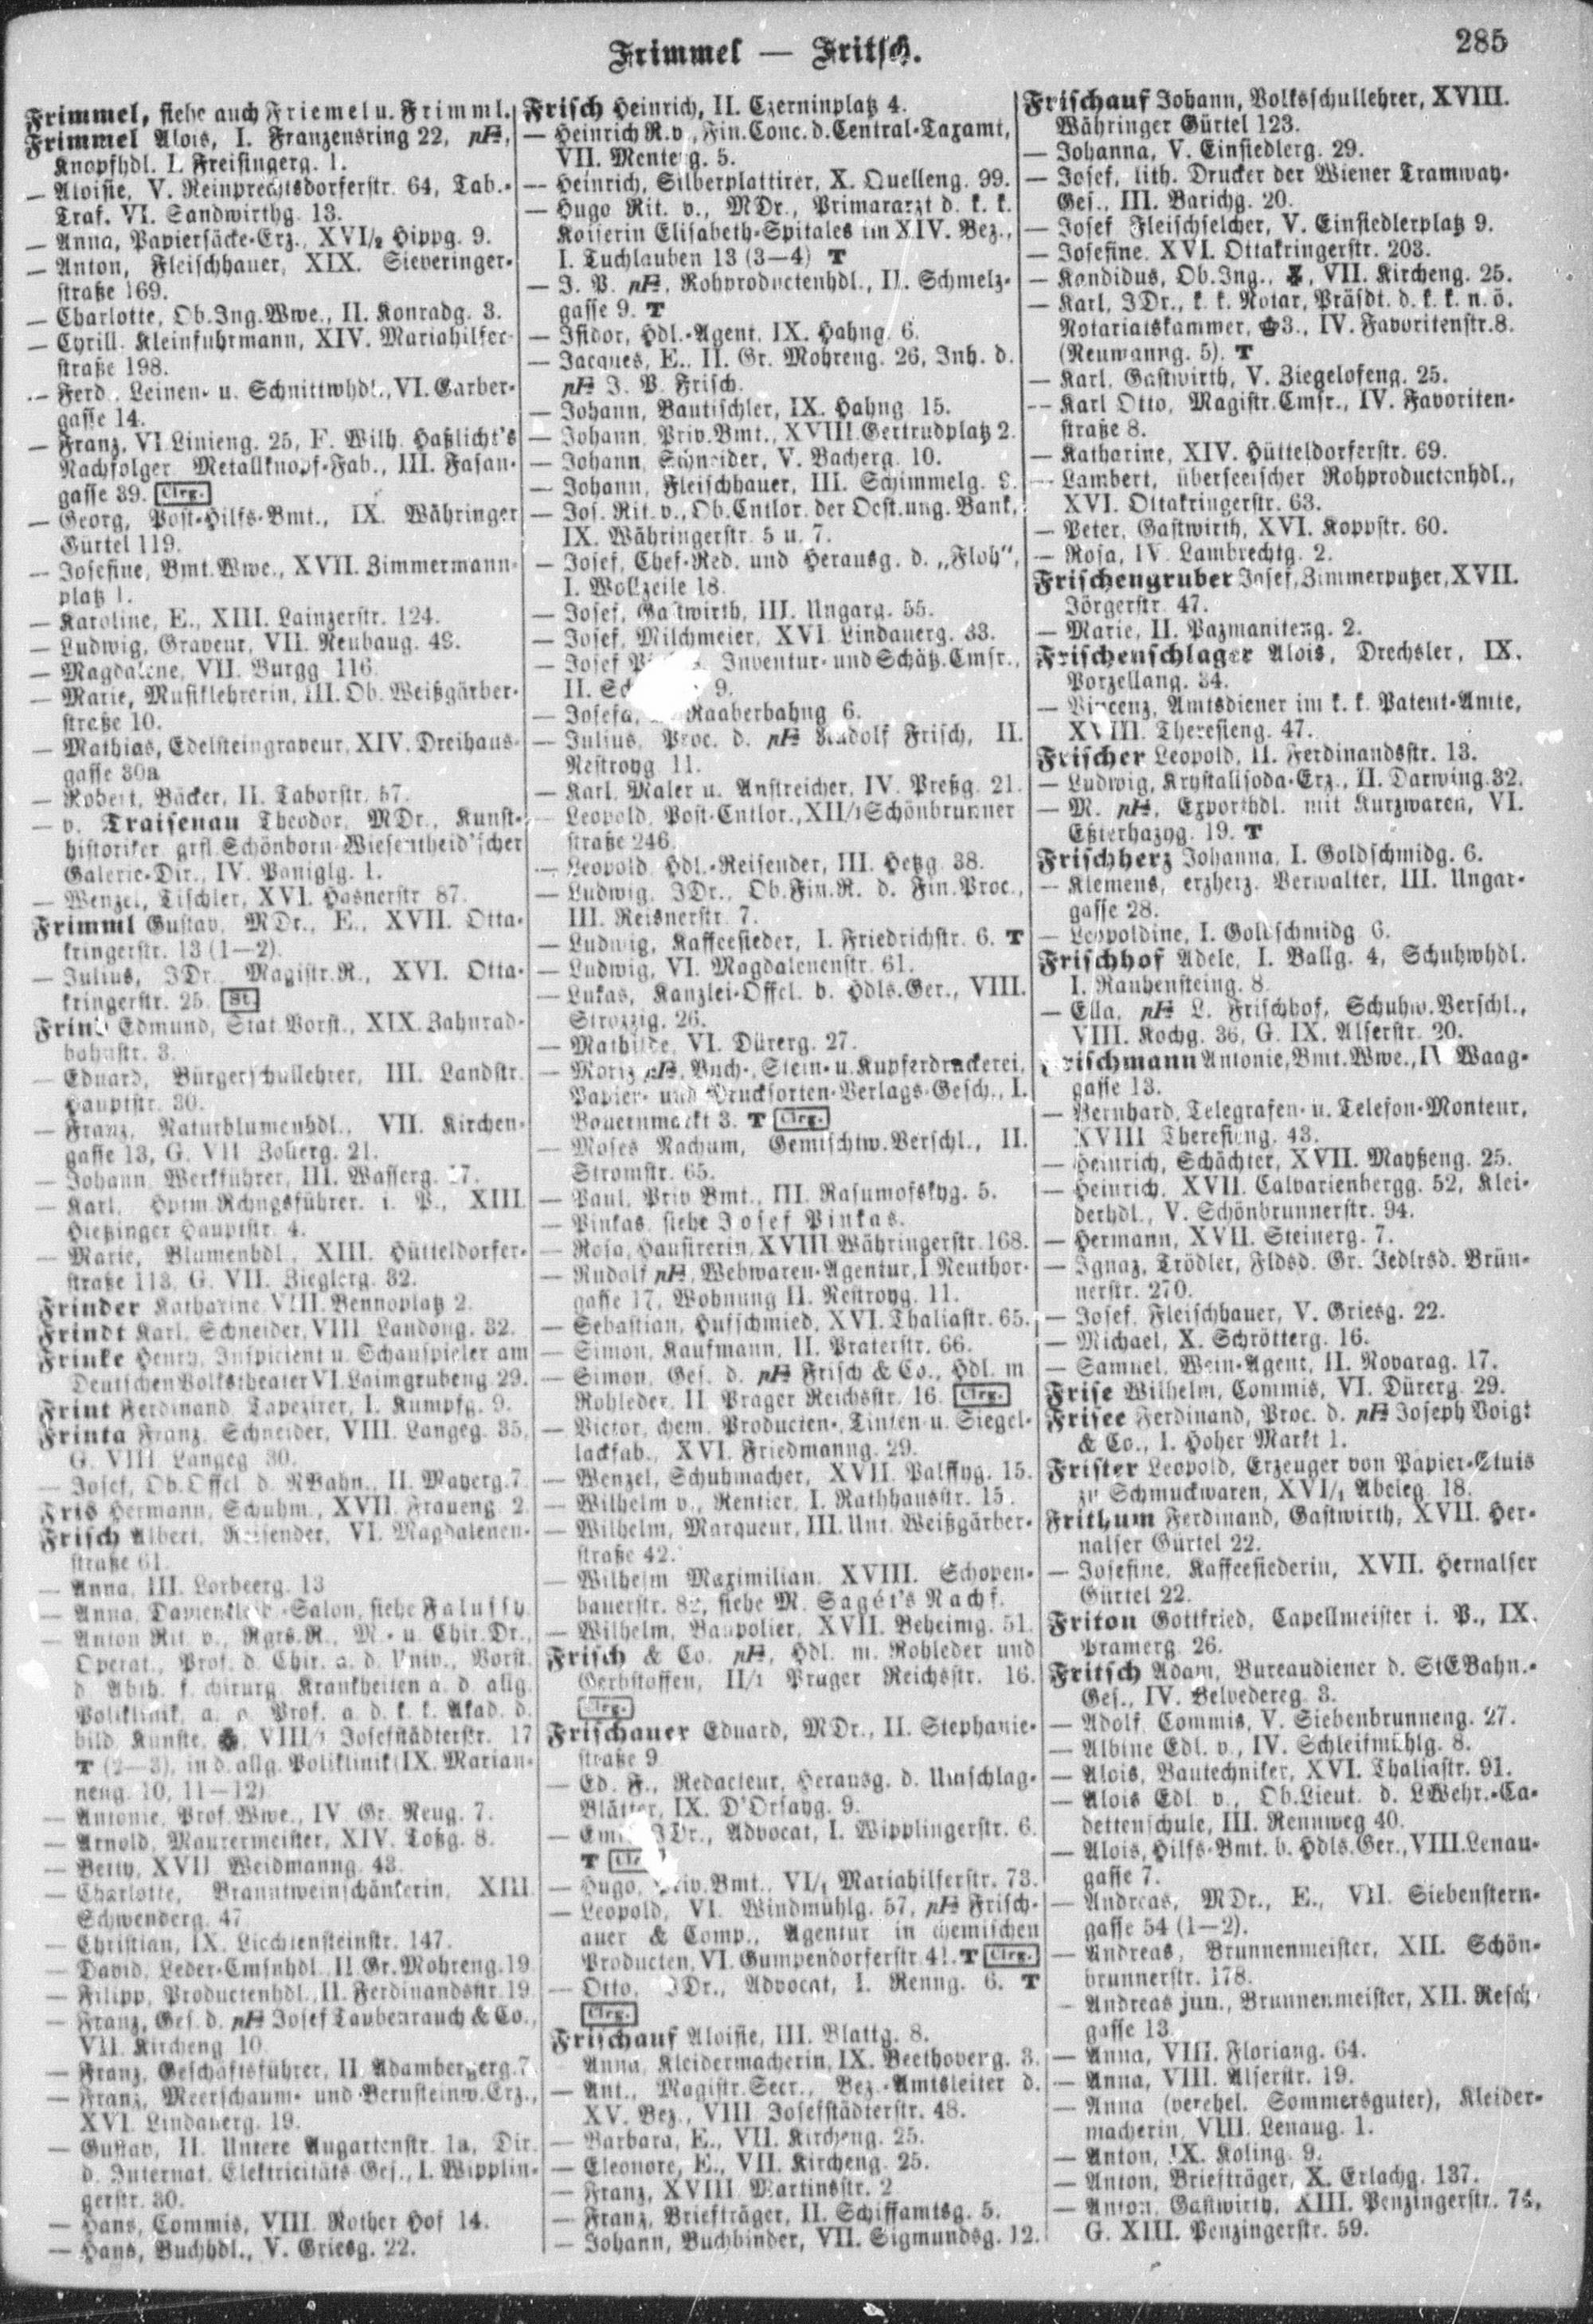 Frimmel — Fritsch.
285
Frimmel, siehe auch Friemel u. Frimml.
Frimmel Alois, I. Franzensring 22,
Knopfhdl. I. Freisingerg. 1.
— Aloisie, V. Reinprechtsdorferstr. 64, Tab.-
Traf. VI. Sandwirthg. 13.
— Anna, Papiersäcke-Erz., XVI/2 Hippg. 9.
— Anton, Fleischhauer, XIX. Sieveringer-
straße 169.
— Charlotte, Ob.Ing.Wwe., II. Konradg. 3.
— Cyrill, Kleinfuhrmann, XIV. Mariahilfer-
straße 198.
— Ferd., Leinen- u. Schnittwhdl., VI. Garber-
gasse 14.
— Franz, VI. Linieng. 25, F. Wilh. Haßlicht's
Nachfolger Metallknopf-Fab., III. Fasan-
gasse 39. Clrg.
— Georg, Post-Hilfs-Bmt., IX. Währinger
Gürtel 119.
— Josefine, Bmt.Wwe., XVII. Zimmermann-
platz 1.
— Karoline, E., XIII. Lainzerstr. 124.
— Ludwig, Graveur, VII. Neubaug.
— Magdalene, VII. Burgg. 116.
— Marie, Musiklehrerin, III. Ob. Weißgärber-
straße 10.
— Mathias, Edelsteingraveur, XIV. Dreihaus-
gasse 30a
— Robert, Bäcker, II. Taborstr. 57.
— v. Traisenau Theodor, MDr., Kunst-
historiker, grfl. Schönborn-Wiesentheid'scher
Galerie-Dir., IV. Paniglg. 1.
— Wenzel, Tischler, XVI. Hasnerstr. 87.
Frimml Gustav, MDr., E., XVII. Otta-
kringerstr. 13 (1—2).
— Julius, JDr., Magistr.R., XVI. Otta-
kringerstr. 25. St.
Edmund, Stat.Vorst., XIX. Zahnrad-
bahnstr. 3.
— Eduard, Bürgerschullehrer, III. Landstr.
Hauptstr. 30.
— Franz, Naturblumenhdl., VII. Kirchen-
gasse 13, G. VII. Zollerg. 21.
— Johann, Werkführer, III. Wasserg.
— Karl, Hptm.Rchngsführer. i. P., XIII.
Hietzinger Hauptstr. 4.
— Marie, Blumenhdl., XIII. Hütteldorfer-
straße 113, G. VII. Zieglerg. 32.
Frinder Katharine, VIII. Bennoplatz 2.
Frindt Karl, Schneider, VIII. Landong. 32.
Frinke Henry, Inspicient u. Schauspieler am
Deutschen Volkstheater VI. Laimgrubeng. 29.
Frint Ferdinand, Tapezirer, I. Kumpfg. 9.
Frinta Franz, Schneider, VIII. Langeg. 35,
G. VIII. Langeg. 30.
— Josef, Ob.Offcl. d. NBahn., II. Mayerg. 7.
Fris Hermann, Schuhm., XVII. Fraueng. 2.
Frisch Albert, Reisender, VI. Magdalenen-
straße 61.
— Anna, III. Lorbeerg. 13
— Anna, Damenkleid.-Salon, siehe Falussy.
— Anton Rit. v., Rgrs.R., M.- u. Chir.Dr.,
Operat., Prof. d. Chir. a. d. Univ., Vorst.
d. Abth. f. chirurg. Krankheiten a. d. allg.
Poliklinik, a. o. Prof. a. d. k. k. Akad. d.
bild. Künste, VIII/1 Josefstädterstr. 17
T (2—3), in d. allg. Poliklinik (IX. Marian-
neng. 10, 11—12)
— Antonie, Prof.Wwe., IV. Gr. Neug. 7.
— Arnold, Maurermeister, XIV. Toßg. 8.
— Betty, XVII. Weidmanng. 43.
— Charlotte, Branntweinschänkerin, XIII.
Schwenderg. 47.
— Christian, IX. Liechtensteinstr. 147.
— David, Leder-Cmsnhdl., II. Gr. Mohreng. 19.
— Filipp, Productenhdl., II. Ferdinandsstr. 19.
— Franz, Ges. d. Josef Taubenrauch & Co.,
VII. Kircheng. 10.
— Franz, Geschäftsführer, II. Adambergerg. 7.
— Franz, Meerschaum- und Bernsteinw.Erz.,
XVI. Lindauerg. 19.
— Gustav, II. Untere Augartenstr. 1a, Dir.
d. Internat. Elektricitäts-Ges., I. Wipplin-
gerstr. 30.
— Hans, Commis, VIII. Rother Hof 14.
— Hans, Buchhdl., V. Griesg. 22.
Frisch Heinrich, II. Czerninplatz 4.
— Heinrich R. v., Fin.Conc. d. Central-Taxamt,
VII. Menterg. 5.
— Heinrich, Silberplattirer, X. Quelleng. 99.
— Hugo Rit. v., MDr., Primararzt d. k. k.
Kaiserin Elisabeth-Spitales im XIV. Bez.,
I. Tuchlauben 13 (3—4) T
— J. P. Rohproductenhdl., II. Schmelz-
gasse 9. T
— Isidor, Hdl.-Agent, IX. Hahng. 6.
— Jacques, E., II. Gr. Mohreng. 26, Inh. d.
J. P. Frisch.
— Johann, Bautischler, IX. Hahng. 15.
— Johann, Priv.Bmt., XVIII. Gertrudplatz 2.
— Johann, Schneider, V. Bacherg. 10.
— Johann, Fleischhauer, III. Schimmelg.
— Jos. Rit. v., Ob.Cntlor. der Oest.ung. Bank,
IX. Währingerstr. 5 u. 7.
— Josef, Chef-Red. und Herausg. d. „Floh",
I. Wollzeile 18.
— Josef, Gastwirth, III. Ungarg. 55.
— Josef, Milchmeier, XVI. Lindauerg. 33.
— Josef Inventur- und Schätz.Cmsr.,
II. 9.
— Josefa, Raaberbahng. 6.
— Julius, Proc. d. Rudolf Frisch, II.
Nestroyg. 11.
— Karl, Maler u. Anstreicher, IV. Preßg. 21.
— Leopold, Post-Cntlor., XII/1 Schönbrunner
straße 246.
— Leopold, Hdl.-Reisender, III. Hetzg. 38.
— Ludwig, JDr., Ob.Fin.R. d. Fin.Proc.,
III. Reisnerstr. 7.
— Ludwig, Kaffeesieder, I. Friedrichstr. 6. T
— Ludwig, VI. Magdalenenstr. 61.
— Lukas, Kanzlei-Offcl. b. Hdls.Ger., VIII.
Strozzig. 26.
— Mathilde, VI. Dürerg. 27.
— Moriz Buch-, Stein- u. Kupferdruckerei,
Papier- und Drucksorten-Verlags-Gesch., I.
Bauernmarkt 3. T Clrg.
— Moses Nachum, Gemischtw.Verschl., II.
Stromstr. 65.
— Paul, Priv.Bmt., III. Rasumofskyg. 5.
— Pinkas, siehe Josef Pinkas.
— Rosa, Hausirerin, XVIII. Währingerstr. 168.
— Rudolf Webwaren-Agentur, I. Neuthor-
gasse 17, Wohnung II. Nestroyg. 11.
— Sebastian, Hufschmied, XVI. Thaliastr. 65.
— Simon, Kaufmann, II. Praterstr. 66.
— Simon, Ges. d. Frisch & Co., Hdl. m.
Rohleder, II. Prager Reichsstr. 16. Clrg.
— Victor, chem. Producten-, Tinten- u. Siegel-
lackfab., XVI. Friedmanng. 29.
— Wenzel, Schuhmacher, XVII. Palffyg. 15.
— Wilhelm v., Rentier, I. Rathhausstr. 15.
— Wilhelm, Marqueur, III. Unt. Weißgärber-
straße 42.
— Wilhelm Maximilian, XVIII. Schopen-
hauerstr. siehe M. Sagé's Nachf.
— Wilhelm, Baupolier, XVII. Beheimg. 51.
Frisch & Co. Hdl. m. Rohleder und
Gerbstoffen, II/1 Prager Reichsstr. 16.
Clrg.
Frischauer Eduard, MDr., II. Stephanie-
straße 9
— Ed. F., Redacteur, Herausg. d. Umschlag-
Blätter, IX. D'Orsayg. 9.
— JDr., Advocat, I. Wipplingerstr. 6.
T
— Hugo, Priv.Bmt., VI/1 Mariahilferstr. 73.
— Leopold, VI. Windmühlg. 57, Frisch-
auer & Comp., Agentur in chemischen
Producten, VI. Gumpendorferstr. 41. T Clrg.
— Otto, JDr., Advocat, I. Renng. 6. T
Clrg.
Frischauf Aloisie, III. Blattg. 8.
Anna, Kleidermacherin, IX. Beethoveng. 3.
— Ant., Magistr.Secr., Bez.-Amtsleiter d.
XV. Bez., VIII. Josefstädterstr. 48.
— Barbara, E., VII. Kircheng. 25.
— Eleonore, E., VII. Kircheng. 25.
— Franz, XVIII. Martinsstr. 2
— Franz, Briefträger, II. Schiffamtsg. 5.
— Johann, Buchbinder, VII. Sigmundsg. 12.
Frischauf Johann, Volksschullehrer, XVIII.
Währinger Gürtel 123.
— Johanna, V. Einsiedlerg. 29.
— Josef, lith. Drucker der Wiener Tramway-
Ges., III. Barichg. 20.
— Josef, Fleischselcher, V. Einsiedlerplatz 9.
— Josefine, XVI. Ottakringerstr. 203.
— Kandidus, Ob.Ing., VII. Kircheng. 25.
— Karl, JDr., k. k. Notar, Präsdt. d. k. k. n. ö.
Notariatskammer, 3., IV. Favoritenstr. 8.
(Neumanng. 5). T
— Karl, Gastwirth, V. Ziegelofeng. 25.
— Karl Otto, Magistr.Cmsr., IV. Favoriten-
straße 8.
— Katharine, XIV. Hütteldorferstr. 69.
— Lambert, überseeischer Rohproductenhdl.,
XVI. Ottakringerstr. 63.
— Peter, Gastwirth, XVI. Koppstr. 60.
— Rosa, IV. Lambrechtg. 2.
Frischengruber Josef, Zimmerputzer, XVII.
Jörgerstr. 47.
— Marie, II. Pazmaniteng. 2.
Frischenschlager Alois, Drechsler, IX.
Porzellang. 34.
— Vincenz, Amtsdiener im k. k. Patent-Amte,
XVIII. Theresieng. 47.
Frischer Leopold, II. Ferdinandsstr. 13.
— Ludwig, Krystallsoda-Erz., II. Darwing. 32.
— M. Exporthdl. mit Kurzwaren, VI.
Eßterhazyg. 19. T
Frischherz Johanna, I. Goldschmidg. 6.
— Klemens, erzherz. Verwalter, III. Ungar-
gasse 28.
— Leopoldine, I. Goldschmidg. 6.
Frischhof Adele, I. Ballg. 4, Schuhwhdl.
I. Rauhensteing. 8
— Ella, L. Frischhof, Schuhw.Verschl.,
VIII. Kochg. 36, G. IX. Alserstr. 20.
Frischmann Antonie, Bmt.Wwe., IV. Waag-
gasse 13.
— Bernhard, Telegrafen- u. Telefon-Monteur,
XVIII. Theresieng. 43.
— Heinrich, Schächter, XVII. Mayßeng. 25.
— Heinrich, XVII. Calvarienbergg. 52, Klei-
derhdl., V. Schönbrunnerstr. 94.
— Hermann, XVII. Steinerg. 7.
— Ignaz, Trödler, Fldsd. Gr. Jedlrsd. Brün-
nerstr. 270.
— Josef, Fleischhauer, V. Griesg. 22.
— Michael, X. Schrötterg. 16.
— Samuel, Wein-Agent, II. Novarag. 17.
Frise Wilhelm, Commis, VI. Dürerg. 29.
Frisee Ferdinand, Proc. d. Joseph Voigt
& Co., I. Hoher Markt 1.
Frister Leopold, Erzeuger von Papier-Etuis
zu Schmuckwaren, XVI/1 Abeleg. 18.
Frithum Ferdinand, Gastwirth, XVII. Her-
nalser Gürtel 22.
— Josefine, Kaffeesiederin, XVII. Hernalser
Gürtel 22.
Friton Gottfried, Capellmeister i. P., IX.
Pramerg. 26.
Fritsch Adam, Bureaudiener d. StEBahn.-
Ges., IV. Belvedereg. 3.
— Adolf, Commis, V. Siebenbrunneng. 27.
— Albine Edl. v., IV. Schleifmühlg. 8.
— Alois, Bautechniker, XVI. Thaliastr. 91.
— Alois Edl. v., Ob.Lieut. d. LWehr.-Ca-
dettenschule, III. Rennweg 40.
— Alois, Hilfs-Bmt. b. Hdls.Ger., VIII. Lenau-
gasse 7.
— Andreas, MDr., E., VII. Siebenstern-
gasse 54 (1—2).
— Andreas, Brunnenmeister, XII. Schön-
brunnerstr. 178.
— Andreas jun., Brunnenmeister, XII. Resch-
gasse 13.
— Anna, VIII. Floriang. 64.
— Anna, VIII. Alserstr. 19.
— Anna (verehel. Sommersguter), Kleider-
macherin, VIII. Lenaug. 1.
— Anton, IX. Koling. 9.
— Anton, Briefträger, X. Erlachg. 137.
— Anton, Gastwirth, XIII. Penzingerstr.
G. XIII. Penzingerstr. 59.